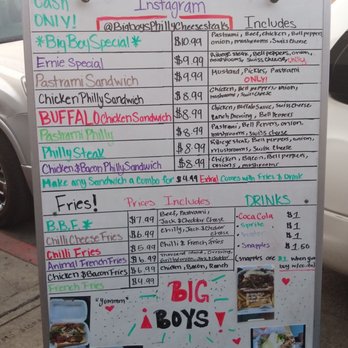 Cash
ONLY!
Instagram
@Bigboysphillycheesesteaks
Includes
*Big Boy Special* $10.99 Pastrami, Beef, chicken, Bell peppers, onion, mushrooms, Swiss cheese
Ernie Special $9.99 Ribeye Steak, Bell peppers, onion, mushrooms, Swiss cheese ONLY!
Pastrami Sandwich $9.99 Mustard, Pickles, Pastrami ONLY!
Chicken Philly Sandwich $8.99 Chicken, Bell peppers, onion, mushrooms, Swiss cheese
BUFFALO Chicken Sandwich $8.99 Chicken, Buffalo Sauce, Swiss cheese Ranch Dressing, Bell Peppers
Pastrami Philly $8.99 Pastrami, Bell Peppers, onion, mushrooms, Swiss cheese
Philly Steak $8.99 Ribeye Steak, Bell peppers, onion, mushrooms, Swiss cheese
Chicken & Bacon Philly Sandwich $8.99 Chicken, Bacon, Bell peppers, onion, mushrooms
Make any Sandwich a Combo for $4.49 Extra! Comes with Fries & Drink
Fries! Prices Includes DRINKS
B.B.F $7.99 Beef, Pastrami, Jack & Cheddar Cheese
Chilli Cheese Fries $6.99 Chilly, Jack & Cheddar Cheese
Chilli Fries $6.99 Chilli & French fries
Animal French Fries $6.99
Chicken & Bacon Fries $6.99 Chicken, Bacon, Ranch
French Fries
- Coca Cola $1
- Sprite $1
$1
$1
- Snapples $1.50
(Snapples are $1 when you buy
"yommm"
BIG
BOYS!